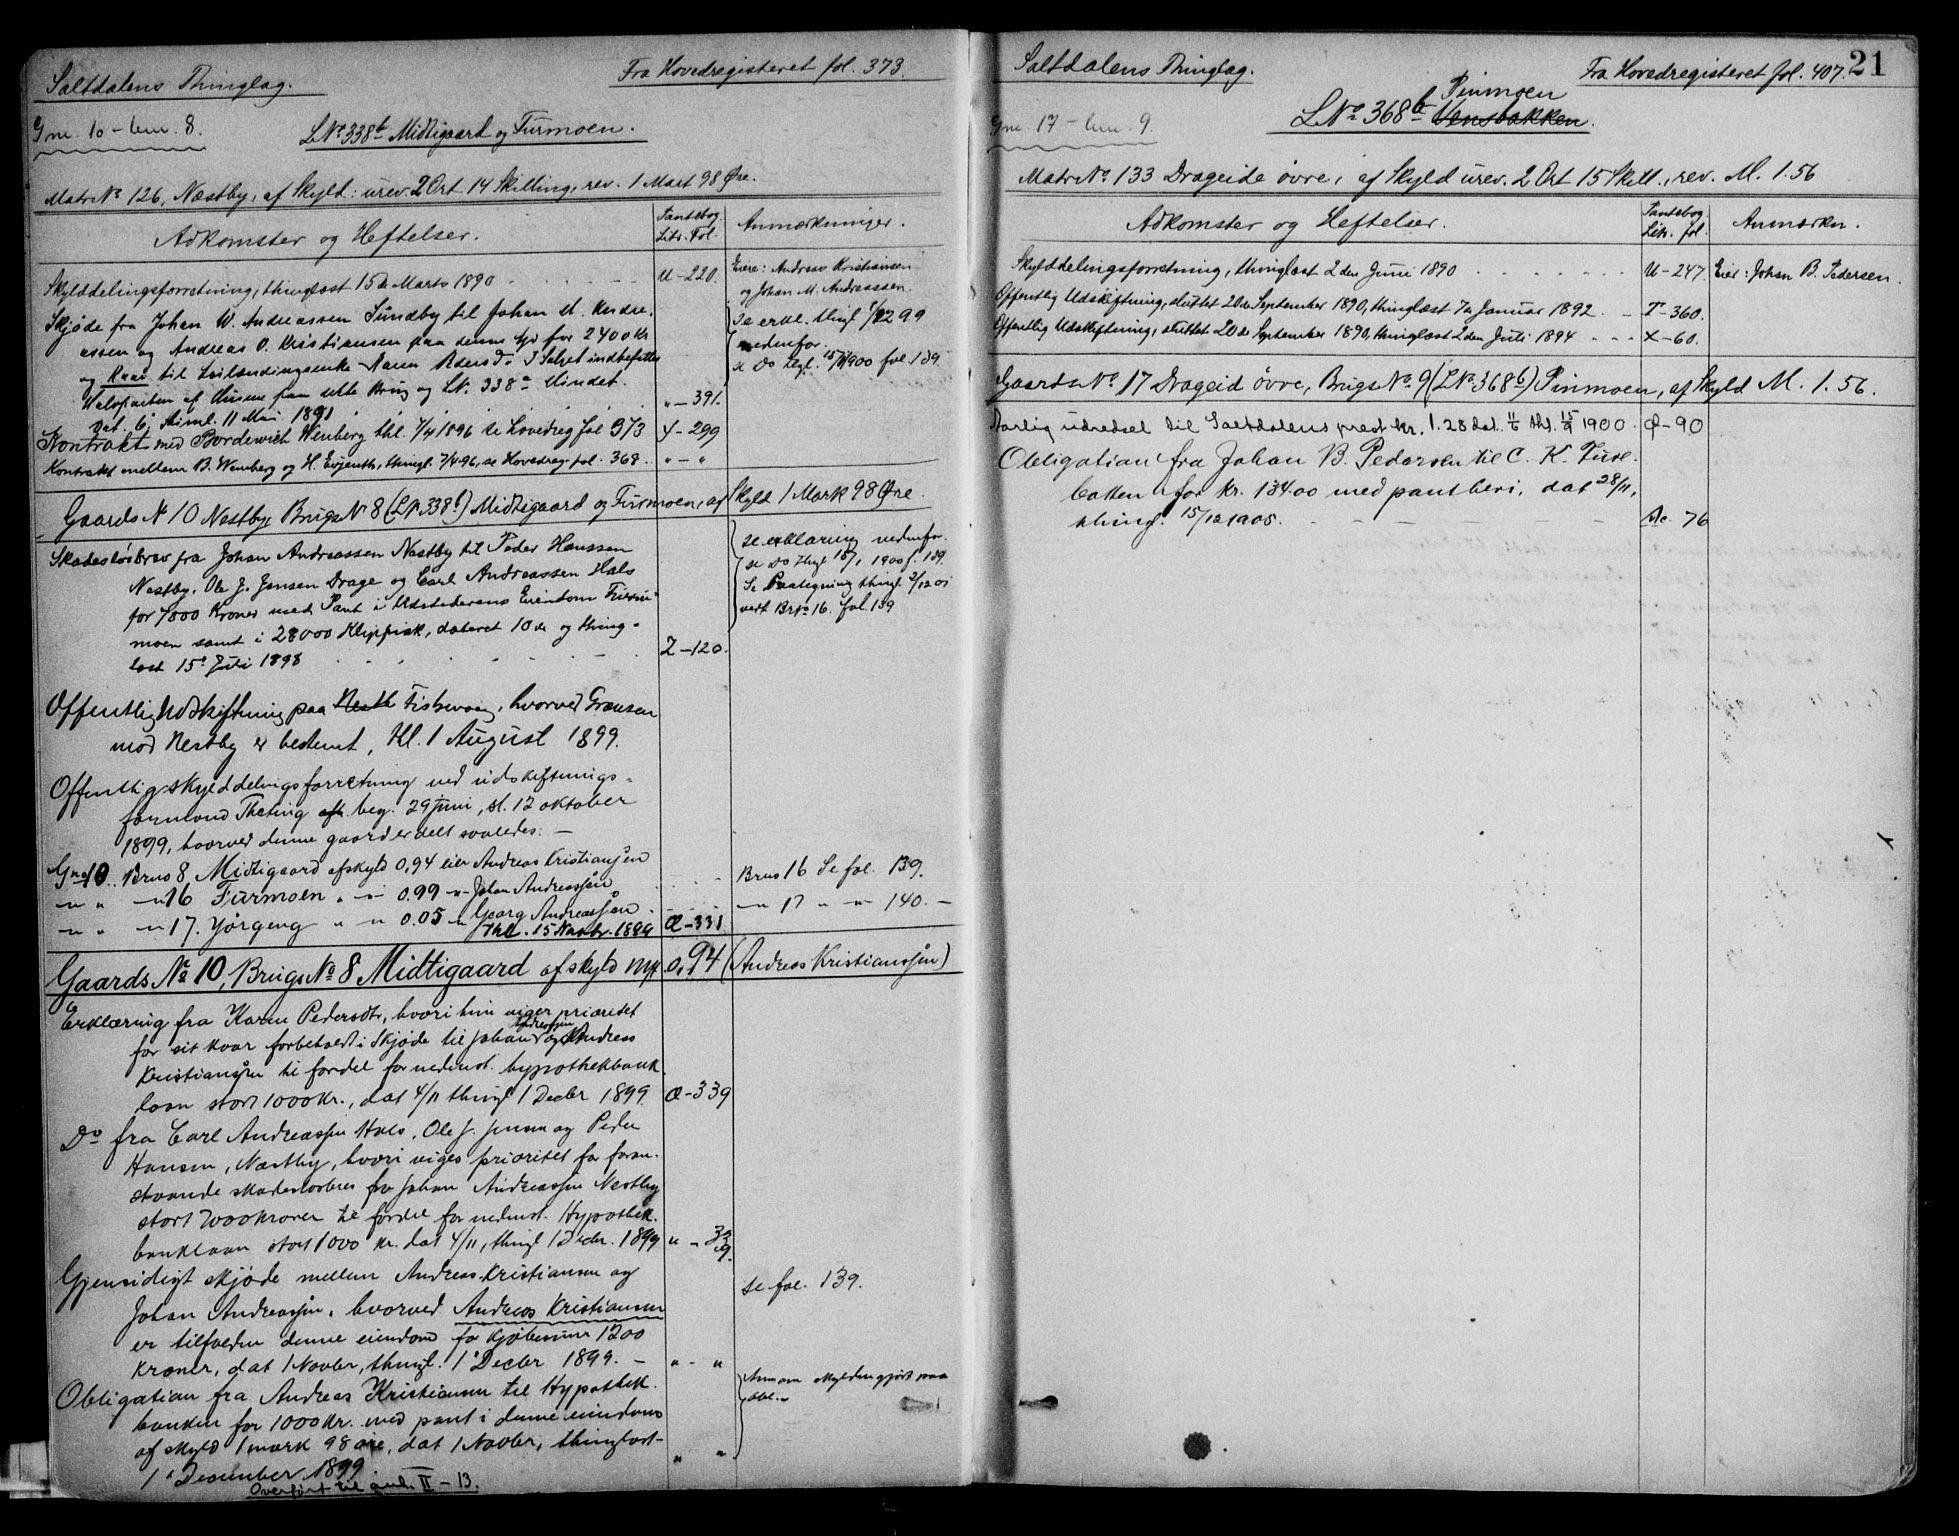 Saltdalens Thinglag.
Fra Hovedregisteret fol. 373.
Gne. 10 – bne. 8.
LNº 338b Midtigaard og Furmoen.
Matr Nº 126, Næstby, af Skyld: urev. 2 Ort 14 Skilling, rev. 1 Mark 98 Øre.
Adkomster og Heftelser.
Pantebog
Litr. Fol.
Anmærkninger.
Skylddelingsforretning, thinglæst 15de Marts 1890
U – 220.
Eiere: Andreas Kristiansen
og Johan M. Andreassen.
Skjøde fra Johan W. Andreassen Sundby til Johan M. Andre-
assen og Andreas O. Kristiansen paa denne Gd for 2400 Kr
og Kaar til Leilændingsenke Karen Pedersdr. I Salget indbefattes
Halvparten af Husene paa dette Brug og LN. 338a Undet.
Dat. 6, thinl. 11 Mai 1891
" – 391.
se erkl. thingl 1/12 99
nedenfor
se Do thgl. 15/1 1900 fol. 139.
Kontrakt med Bordewich Wenberg thl. 7/4 1896 se hovedreg fol 373
Y – 299
Kontrakt mellem B. Wenberg og H. Evjenth, thingl. 7/4 96, se Hovedreg. fol. 368.
" – "
Gaards Nº 10 Nestby, Brugs Nº 8 (LN. 338b) Midtigaard og Furmoen, af Skyld 1 Mark 98 Øre.
Skadesløsbrev fra Johan Andreassen Nestby til Peder Hanssen
Nestby, Ole J. Jensen Drage og Carl Andreassen Hals
for 7000 Kroner med Pant i Udstederens Eiendom Furu-
moen samt i 28000 Klipfisk, dateret 10de og thing-
læst 15de Juli 1898
Z – 120.
se erklæring nedenfor.
se Do thgl 15/1 1900 f. 139.
Se Paategning thingl. 2/12 01
vedk Brno 16. fol. 139
Offentlig Udskiftning paa Fiskvaag, hvorved Grænsen
mod Nestby er bestemt, thl. 1 August 1899.
Offentlig skylddelingsforretning ved udskiftnings-
formand Theting beg. 29 juni, sl. 12 oktober
1899, hvorved denne gaard er delt saaledes: –
Gno 10. Brno 8 Midtigaard afskyld 0,94 eier Andreas Kristiansen
" " " 16 Furmoen " " 0.99 " Johan Andreassen
" " " 17. Yørgeng " " 0.05 " Georg Andreassen
Thl. 15 Novbr. 1899
Æ – 331
Brno 16 Se fol. 139.
" 17 " " 140. –
Gaards Nº 10, Brugs Nº 8 Midtigaard afskyld Mk 0,94 (Andreas Kristianssen)
Erklæring fra Karen Pedersdtr, hvori hun viger prioritet
for sit kaar forbeholdt i Skjøde til Johan Andreassen og Andreas
Kristiansen til fordel for nedenst. hypothekbank
laan stort 1000 Kr., dat 4/11 thingl 1 Decbr 1899.
Æ – 339
Do fra Carl Andreassen Hals, Ole J. Jensen og Peder
Hansen, Næstby, hvori viges prioritet for foran-
staaende skadesløsbrev fra Johan Andreassen Nestby
stort 7000 kroner til fordel for nedenst. Hypothek-
banklaan stort 1000 kr. dat 4/11, thingl 1 Decbr. 1899
" – 339.
Gjensidigt skjøde mellem Andreas Kristiansen og
Johan Andreassen, hvorved Andreas Kristiansen
er tilfalden denne eiendom for Kjøbesum 1200
kroner, dat 1 Novbr, thingl. 1 Decbr 1899. –
" – "
se fol. 139.
Obligation fra Andreas Kristiansen til Hypothek-
banken for 1000 Kr. med pant i denne eiendom
af skyld 1 mark 98 øre, dat 1 Novbr, thinglæst
1 December 1899
" "
Anm om skylden gjort paa
obl. –
Overført til gml. II – 13.
21
Saltdalens Thinglag.
Fra Hovedregisteret fol. 407.
Gne. 17 – bne. 9.
Pinmoen
LNº 368b Vensbakken.
Matr Nº 133 Drageide øvre, af Skyld urev. 2 Ort 15 Skill., rev. M. 1.56
Adkomster og Heftelser.
Pantebog
Litr. fol.
Anmærkn.
Skylddelingsforretning, thinglæst 2den Juni 1890
U – 247.
Eier: Johan B. Pedersen.
Offentlig Udskiftning, sluttet 20de September 1890, thinglæst 7de Januar 1892
T – 360.
Offentlig Udskiftning, sluttet 20de September 1890, thinglæst 2den Juli 1894
X – 60.
Gaards Nº 17 Drageid øvre, Brugs Nº 9 (LNº 368b) Pinmoen, af Skyld M. 1.56.
Aarlig udredsel til Saltdalens prest kr. 1.28 dat. thl. 15/9 1900.
Ø – 90
Obligation fra Johan B. Pedersen til C. K. Ture-
bakken for Kr. 134.00 med pant heri, dat 28/11,
thingl. 15/12 1905.
76